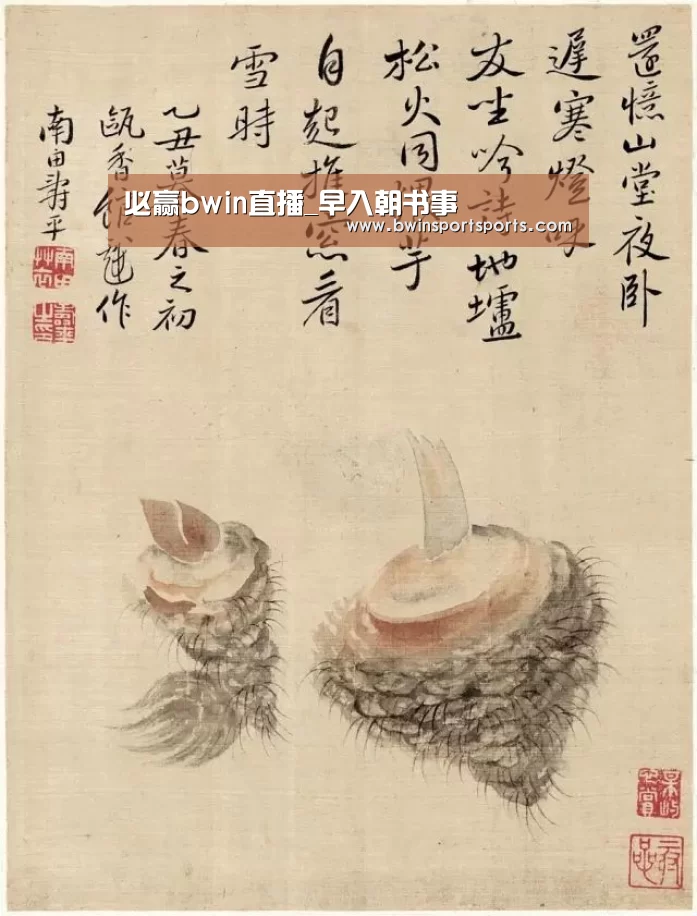 還憶山堂夜卧
遲寒燈呼
友坐吟詩地壚
松火同煨芋
自起推窓看
雪時
乙丑暮春之初
甌香館戲作
南田壽平
必赢bwin直播_早入朝书事
www.bwinsportsports.com